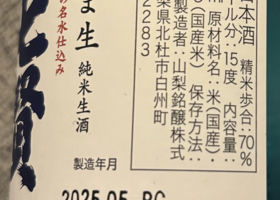 日本酒 精米歩合:70%
ール分:15度 内容量:
原材料名:米(国産)・
(国産米) 保存方法:
製造者:山梨銘醸株式
梨県北杜市白州町
2283
製造年月
2025.05
ま生
純米生酒
名水仕込み